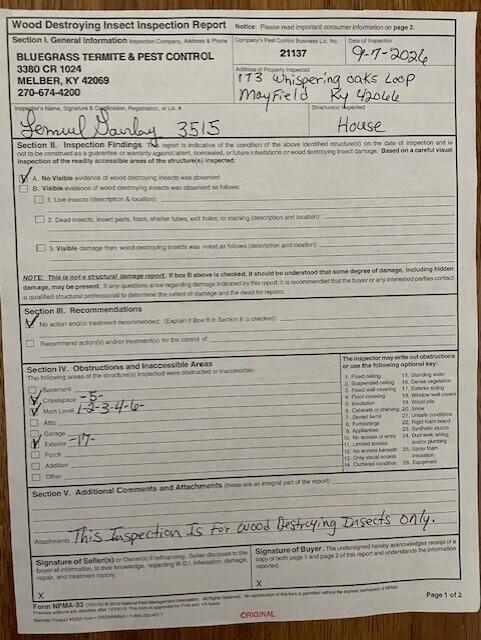 Wood Destroying Insect Inspection Report Notice: Please read important consumer information on page 2.
Section I. General Information Inspection Company, Address & Phone
BLUEGRASS TERMITE & PEST CONTROL
3380 CR 1024
MELBER, KY 42069
270-674-4200
Company's Pest Control Business Lic. No.
21137
Date of Inspection
9-7-2026
Address of Property Inspected
173 Whispering Oaks Loop
Mayfield Ky 42066
Inspector's Name, Signature & Certification, Registration, or Lic. #
3515
Structure(s) Inspected
House
Section II. Inspection Findings This report is indicative of the condition of the above identified structure(s) on the date of inspection and is
not to be construed as a guarantee or warranty against latent, concealed, or future infestations or wood destroying insect damage. Based on a careful visual
inspection of the readily accessible areas of the structure(s) inspected:
A. No Visible evidence of wood destroying insects was observed.
B. Visible evidence of wood destroying insects was observed as follows:
1. Live insects (description & location):
2. Dead insects, insect parts, frass, shelter tubes, exit holes, or staining (description and location):
3. Visible damage from wood destroying insects was noted as follows (description and location):
NOTE: This is not a structural damage report. If box B above is checked, it should be understood that some degree of damage, including hidden
damage, may be present. If any questions arise regarding damage indicated by this report, it is recommended that the buyer or any interested parties contact
a qualified structural professional to determine the extent of damage and the need for repairs.
Section III. Recommendations
No action and/or treatment recommended: (Explain if Box B in Section II is checked)
Recommend action(s) and/or treatment(s) for the control of:
Section IV. Obstructions and Inaccessible Areas
The following areas of the structure(s) inspected were obstructed or inaccessible:
Basement
Crawlspace -5-
Main Level 1-2-3-4-6-
Attic
Garage
Exterior -17-
Porch
Addition
Other
The inspector may write out obstructions
or use the following optional key:
1. Fixed ceiling
2. Suspended ceiling
3. Fixed wall covering
4. Floor covering
5. Insulation
6. Cabinets or shelving
7. Stored items
8. Furnishings
9. Appliances
10. No access or entry
11. Limited access
12. No access beneath
13. Only visual access
14. Cluttered condition
15. Standing water
16. Dense vegetation
17. Exterior siding
18. Window well covers
19. Wood pile
20. Snow
21. Unsafe conditions
22. Rigid foam board
23. Synthetic stucco
24. Duct work, wiring,
and/or plumbing
25. Spray foam
insulation
26. Equipment
Section V. Additional Comments and Attachments (these are an integral part of the report)
Attachments This Inspection Is For Wood Destroying Insects Only.
Signature of Seller(s) or Owner(s) if refinancing. Seller discloses to the
buyer all information, to their knowledge, regarding W.D.I. infestation, damage,
repair, and treatment history.
X
Signature of Buyer. The undersigned hereby acknowledges receipt of a
copy of both page 1 and page 2 of this report and understands the information
reported.
X
Form NPMA-33
Page 1 of 2
ORIGINAL